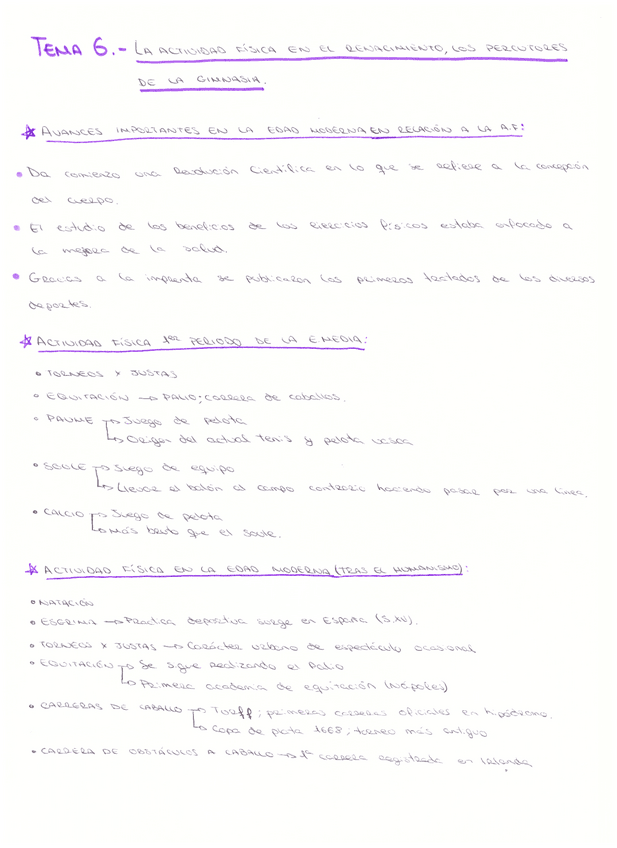 TEMA 6.- LA ACTIVIDAD FÍSICA EN EL RENACIMIENTO, LOS PERCUTORES
DE LA GIMNASIA.
AVANCES IMPORTANTES EN LA EDAD MODERNA EN RELACIÓN A LA A.F:
• Da comienzo una Revolución Científica en lo que se refiere a la concepción
del cuerpo.
• El estudio de los beneficios de los ejercicios físicos estaba enfocado a
la mejora de la salud.
• Gracias a la imprenta se publicaron los primeros tratados de los diversos
deportes.
ACTIVIDAD FÍSICA 1er PERIODO DE LA E.MEDIA:
• TORNEOS Y JUSTAS
• EQUITACIÓN → PALIO; carrera de caballos.
• PAUME → Juego de pelota
↳ Origen del actual tenis y pelota vasca
• SOULE → Juego de equipo
↳ Llevar el balón al campo contrario haciendo pasar por una línea.
• CALCIO → Juego de pelota
↳ Más bruto que el soule.
ACTIVIDAD FÍSICA EN LA EDAD MODERNA (TRAS EL HUMANISMO):
• NATACIÓN
• ESGRIMA → Práctica deportiva surge en España (S.XV).
• TORNEOS Y JUSTAS → Carácter urbano de espectáculo ocasional
• EQUITACIÓN → Se sigue realizando el Palio
↳ Primera academia de equitación (Nápoles)
• CARRERAS DE CABALLO → Turff; primeras carreras oficiales en hipódromo.
↳ Copa de plata 1668; torneo más antiguo
• CARRERA DE OBSTÁCULOS A CABALLO → 1ª carrera registrada en Irlanda